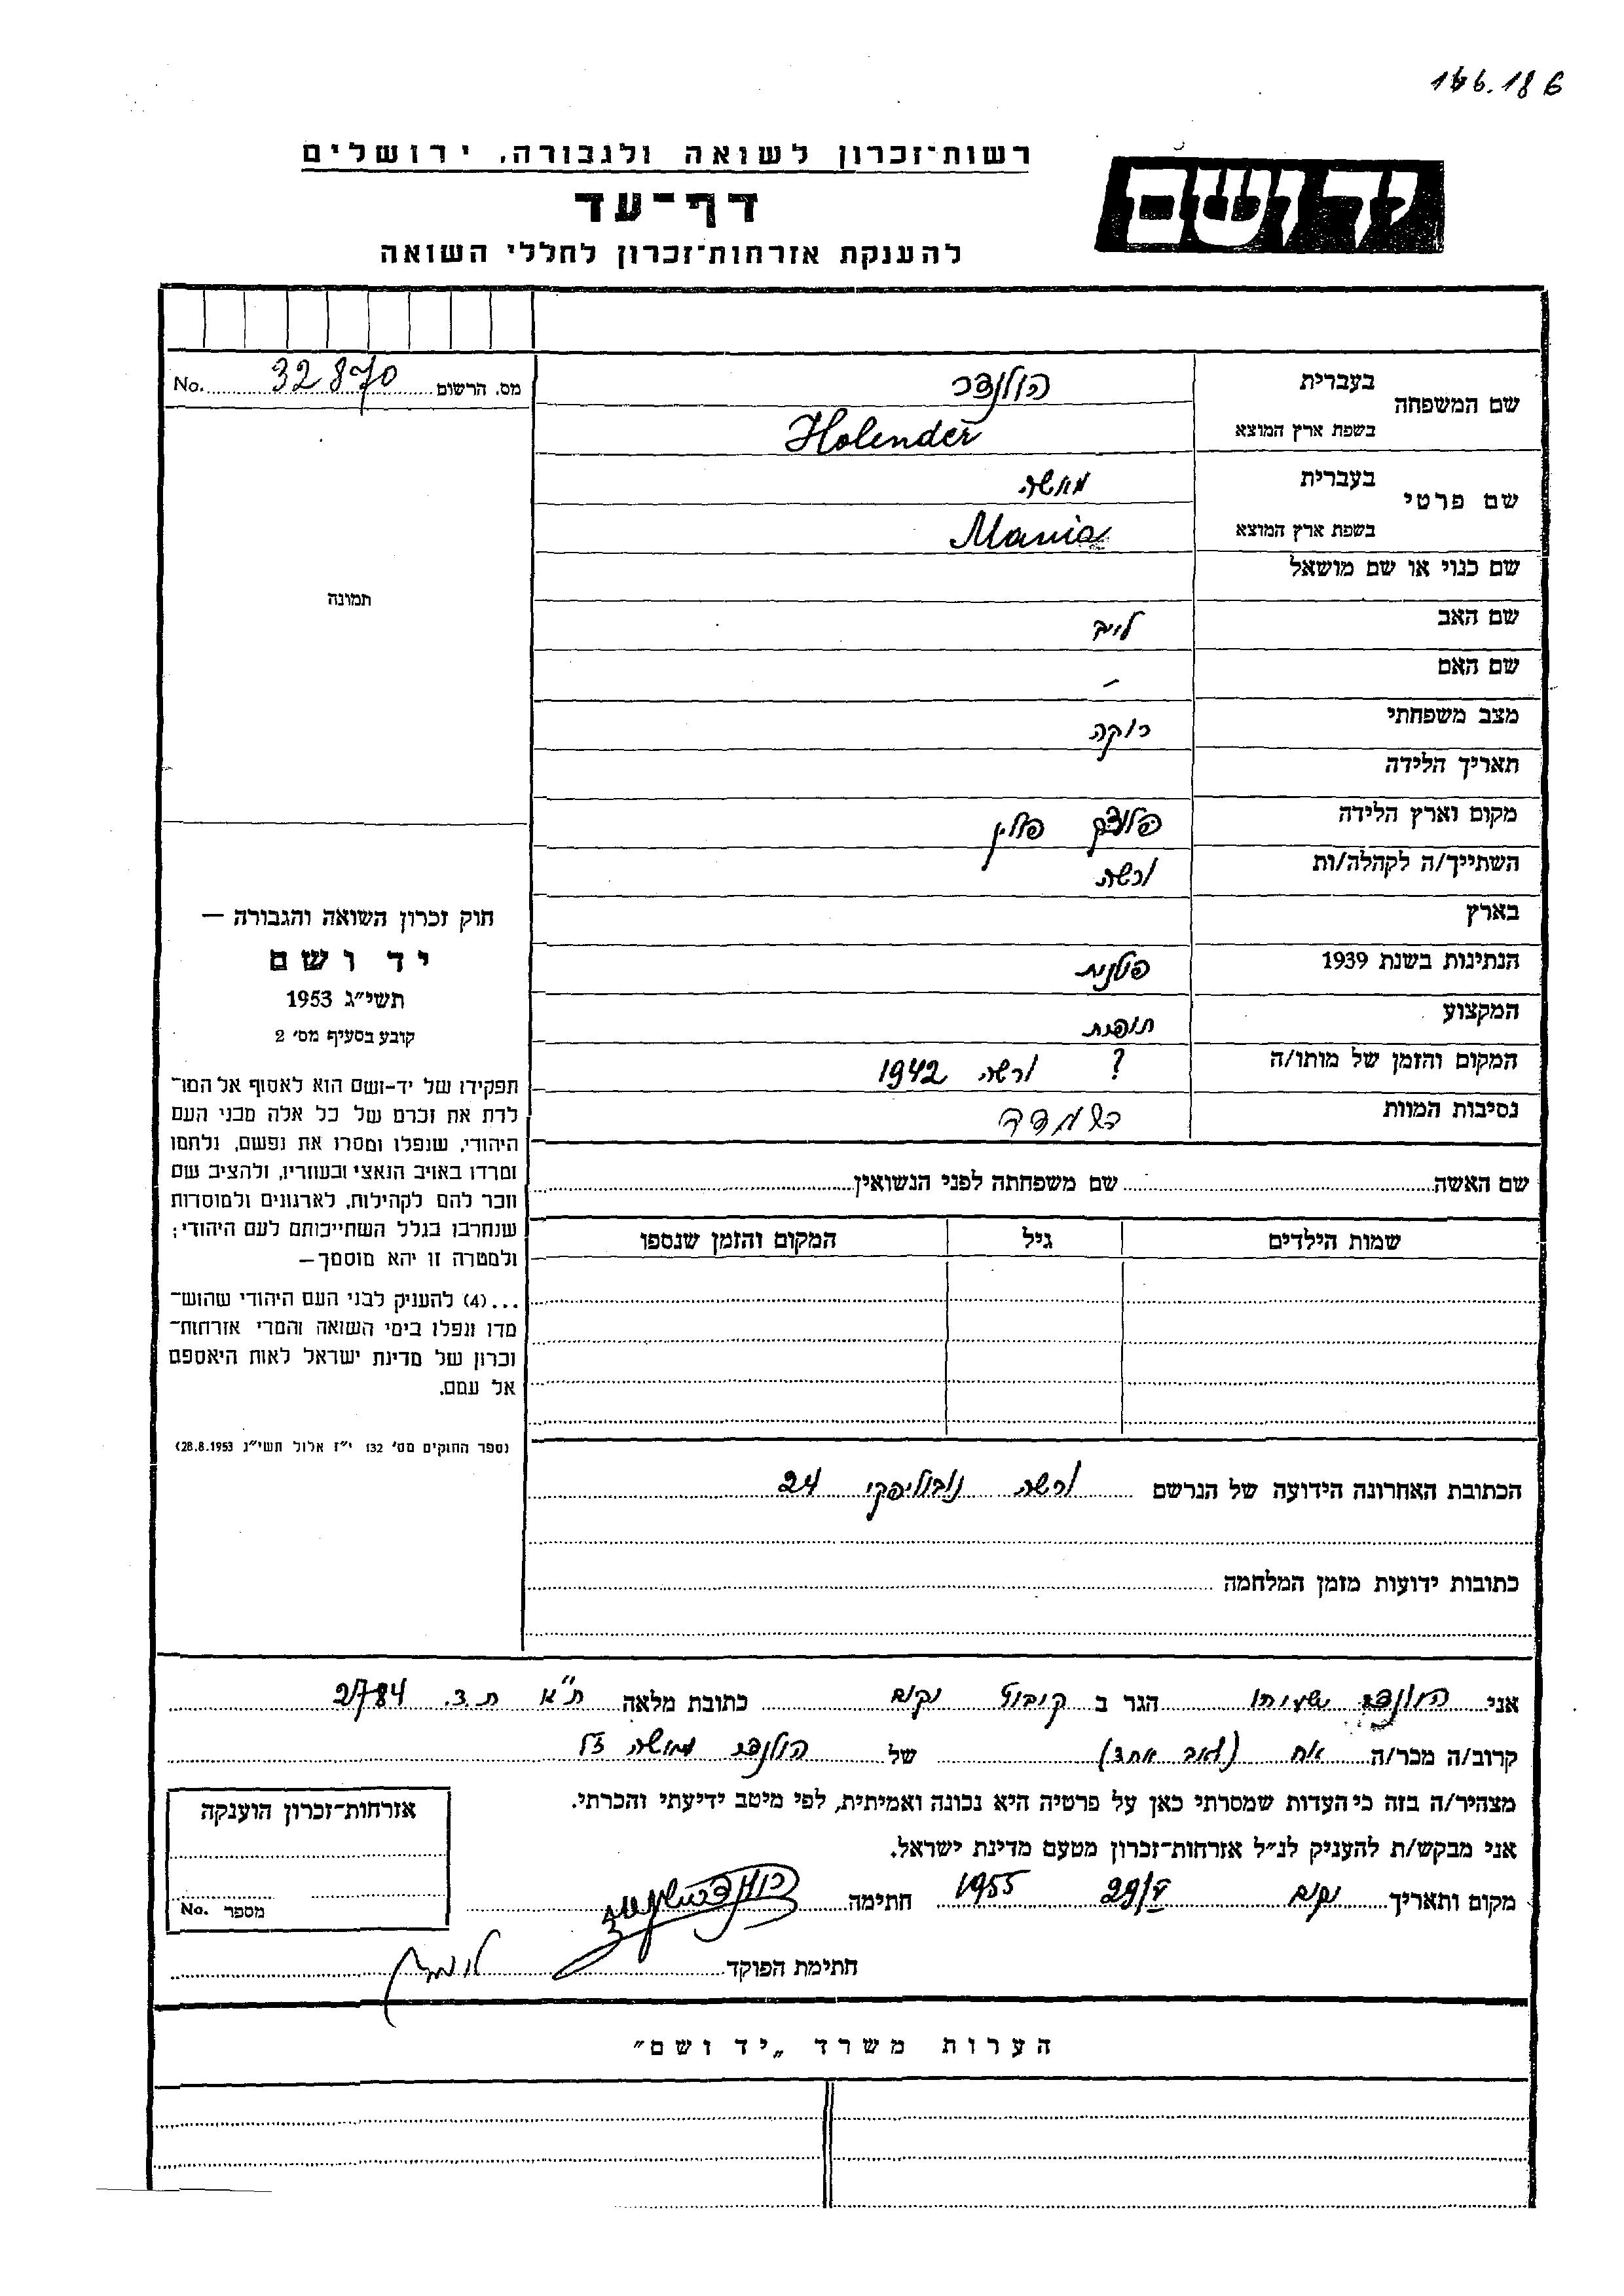 166.18 6
רשות־זכרון לשואה ולגבורה, ירושלים
יד ושם
דף־עד
להענקת אזרחות־זכרון לחללי השואה
No. 32870 מס. הרשום
שם המשפחה בעברית הולנדר
בשפת ארץ המוצא Holender
שם פרטי בעברית
בשפת ארץ המוצא Mania
שם כנוי או שם מושאל
תמונה
שם האב לייב
שם האם –
מצב משפחתי רוקה
תאריך הלידה
מקום וארץ הלידה פלוצק פולין
השתייך/ה לקהלה/ות ורשה
בארץ
הנתינות בשנת 1939 פולנית
המקצוע תופרת
המקום והזמן של מותו/ה ? ורשה 1942
נסיבות המוות בהשמדה
חוק זכרון השואה והגבורה —
יד ושם
תשי״ג 1953
קובע בסעיף מס׳ 2
תפקידו של יד-ושם הוא לאסוף אל המו־
לדת את זכרם של כל אלה מבני העם
היהודי, שנפלו ומסרו את נפשם, נלחמו
ומרדו באויב הנאצי ובעוזריו, ולהציב שם
וזכר להם לקהילות, לארגונים ולמוסדות
שנחרבו בגלל השתייכותם לעם היהודי;
ולמטרה זו יהא מוסמך—
...(4) להעניק לבני העם היהודי שהוש־
מדו ונפלו בימי השואה והמרי אזרחות־
זכרון של מדינת ישראל לאות היאספם
אל עמם.
(ספר החוקים מס׳ 132 י״ז אלול תשי״ג 28.8.1953)
שם האשה שם משפחתה לפני הנשואין
שמות הילדים גיל המקום והזמן שנספו
הכתובת האחרונה הידועה של הנרשם ורשה נובוליפקי 24
כתובות ידועות מזמן המלחמה
אני הולנדר ישעיהו הגר ב קיבוץ יקום כתובת מלאה ת״א ת.ד. 2784
קרוב/ה מכר/ה אח (לאב אחד) של הולנדר ז״ל
מצהיר/ה בזה כי העדות שמסרתי כאן על פרטיה היא נכונה ואמיתית, לפי מיטב ידיעתי והכרתי.
אני מבקש/ת להעניק לנ״ל אזרחות־זכרון מטעם מדינת ישראל.
מקום ותאריך יקום 29/V 1955 חתימה
חתימת הפוקד
אזרחות־זכרון הוענקה
No. מספר
הערות משרד „יד ושם״